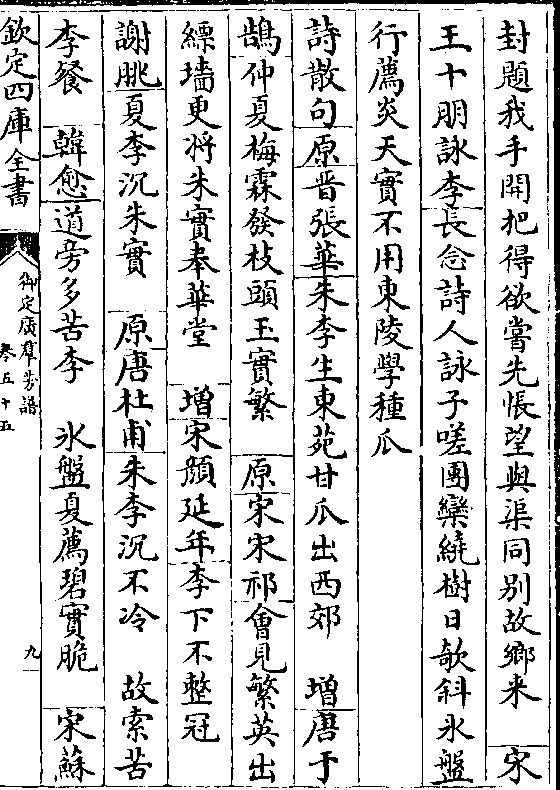 封題我手開把得欲嘗先悵望與渠同别故鄉来　宋
王十朋詠李長念詩人詠子嗟團欒繞樹日欹斜氷盤
行薦炎天實不用東陵學種瓜
詩散句原晉張華朱李生東苑甘瓜出西郊　增唐于
鵠仲夏梅霖發枝頭玉實繁　原宋宋祁㑹見繁英出
縹墻更將朱實奉華堂　增宋顔延年李下不整冠
謝朓夏李沉朱實　原唐杜甫朱李沉不冷　故索苦
李餐　韓愈道旁多苦李　氷盤夏薦碧實脆　宋蘇
欽定四庫全書
御定廣羣芳譜
卷五十五
九